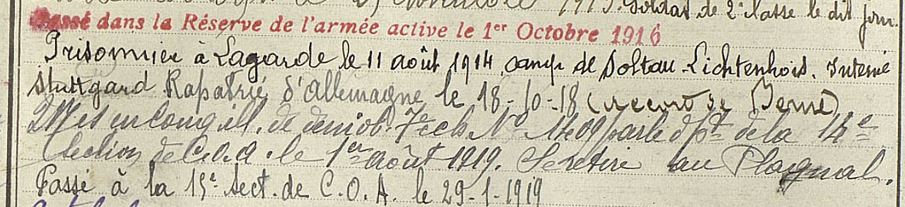 1913. Soldat de 2e classe le dit jour.
Passé dans la Réserve de l'armée active le 1er Octobre 1916
Prisonnier à Lagarde le 11 août 1914, camp de Soltau-Lichtenhors. Interné
Stuttgard Rapatrié d'Allemagne le 18-10-18 (
Mis en cong ill. de démob. 7e ech No 1409 par le dpt de la 14e
Section de C.O.A. le 1er août 1919. Se retire au Plagnal.
Passé à la 15e Sect. de C.O.A. le 29-1-1919